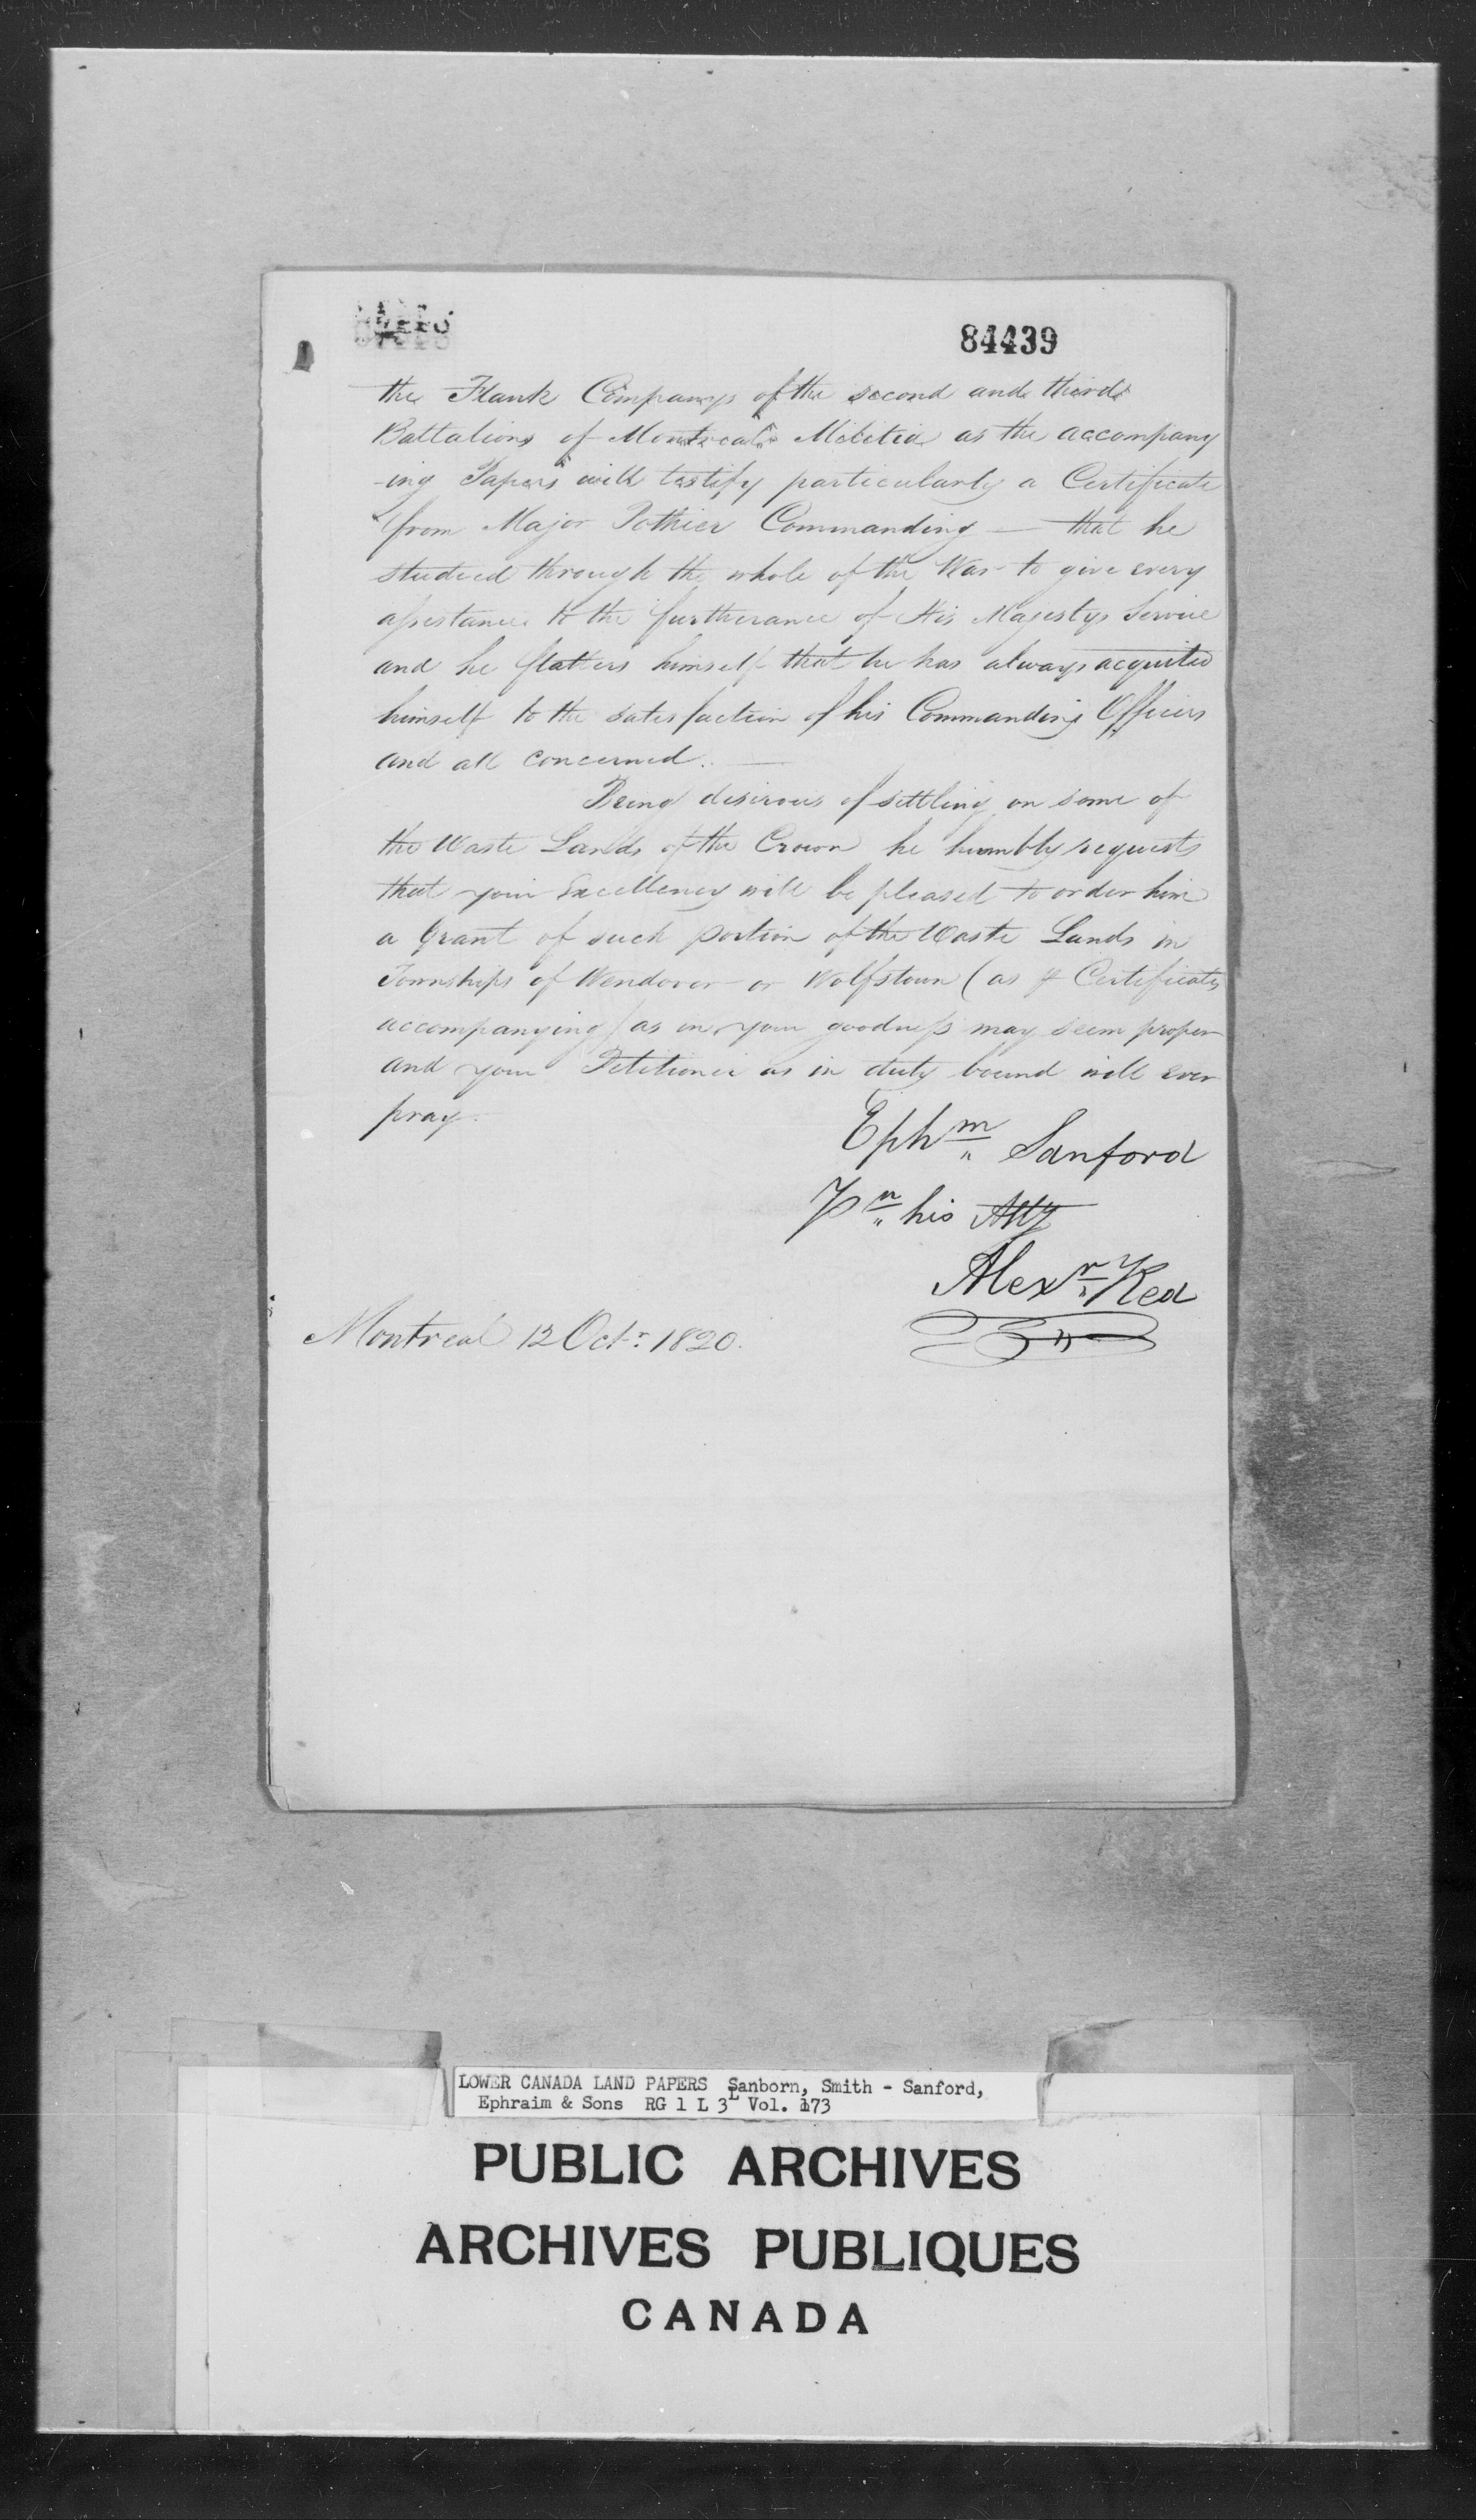 84439
the Flank Companys of the second and third
Battalions of Montreal Militia as the accompany
-ing Papers will testify particularly a Certificate
from Major Pothier Commanding — that he
studied through the whole of the War to give every
assistance to the furtherance of His Majestys Service
and he flatters himself that he has always acquited
himself to the satisfaction of his Commanding Officers
and all concerned. —
Being desirous of settling on some of
the Waste Lands of the Crown he humbly requests
that your Excellency will be pleased to order him
a Grant of such portion of the Waste Lands in
Townships of Wendover or Wolfstown (as p Certificates
accompanying) as in your goodness may seem proper
and your Petitioner as in duty bound will ever
pray.
Ephm Sanford
Pr his Atty
Alexr
Montreal 12 Octr 1820.
LOWER CANADA LAND PAPERS Sanborn, Smith - Sanford,
Ephraim & Sons RG 1 L 3L Vol. 173
PUBLIC ARCHIVES
ARCHIVES PUBLIQUES
CANADA